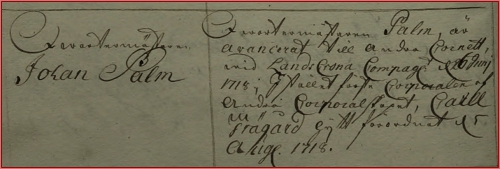 Qvartermästaren
Johan Palm
Qvartermästaren Palm, är
avancerat till Andra Cornett,
vid Landzcrona Compagn: d 16 Junij
1718; I stället första Corporalen af
Andra Corporalskapet, Carll
Trägård gytt förordnat d 5
Aug. 1718.